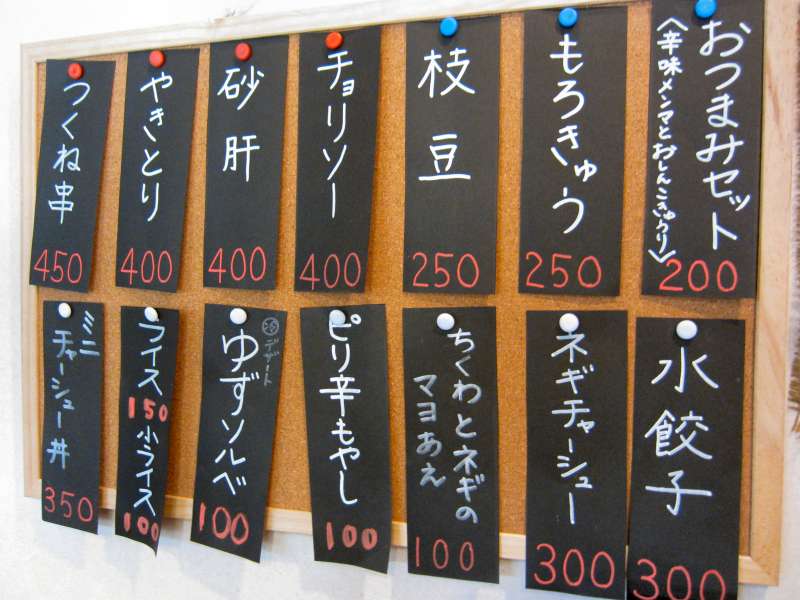 おつまみセット
〈辛味メンマとおしんこきゅうり〉
200
もろきゅう
250
枝豆
250
チョリソー
400
砂肝
400
やきとり
400
つくね串
450
水餃子
300
ネギチャーシュー
300
ちくわとネギの
マヨあえ
100
ピリ辛もやし
100
デザート
ゆずソルベ
100
ライス
150
小ライス
100
ミニ
チャーシュー丼
350